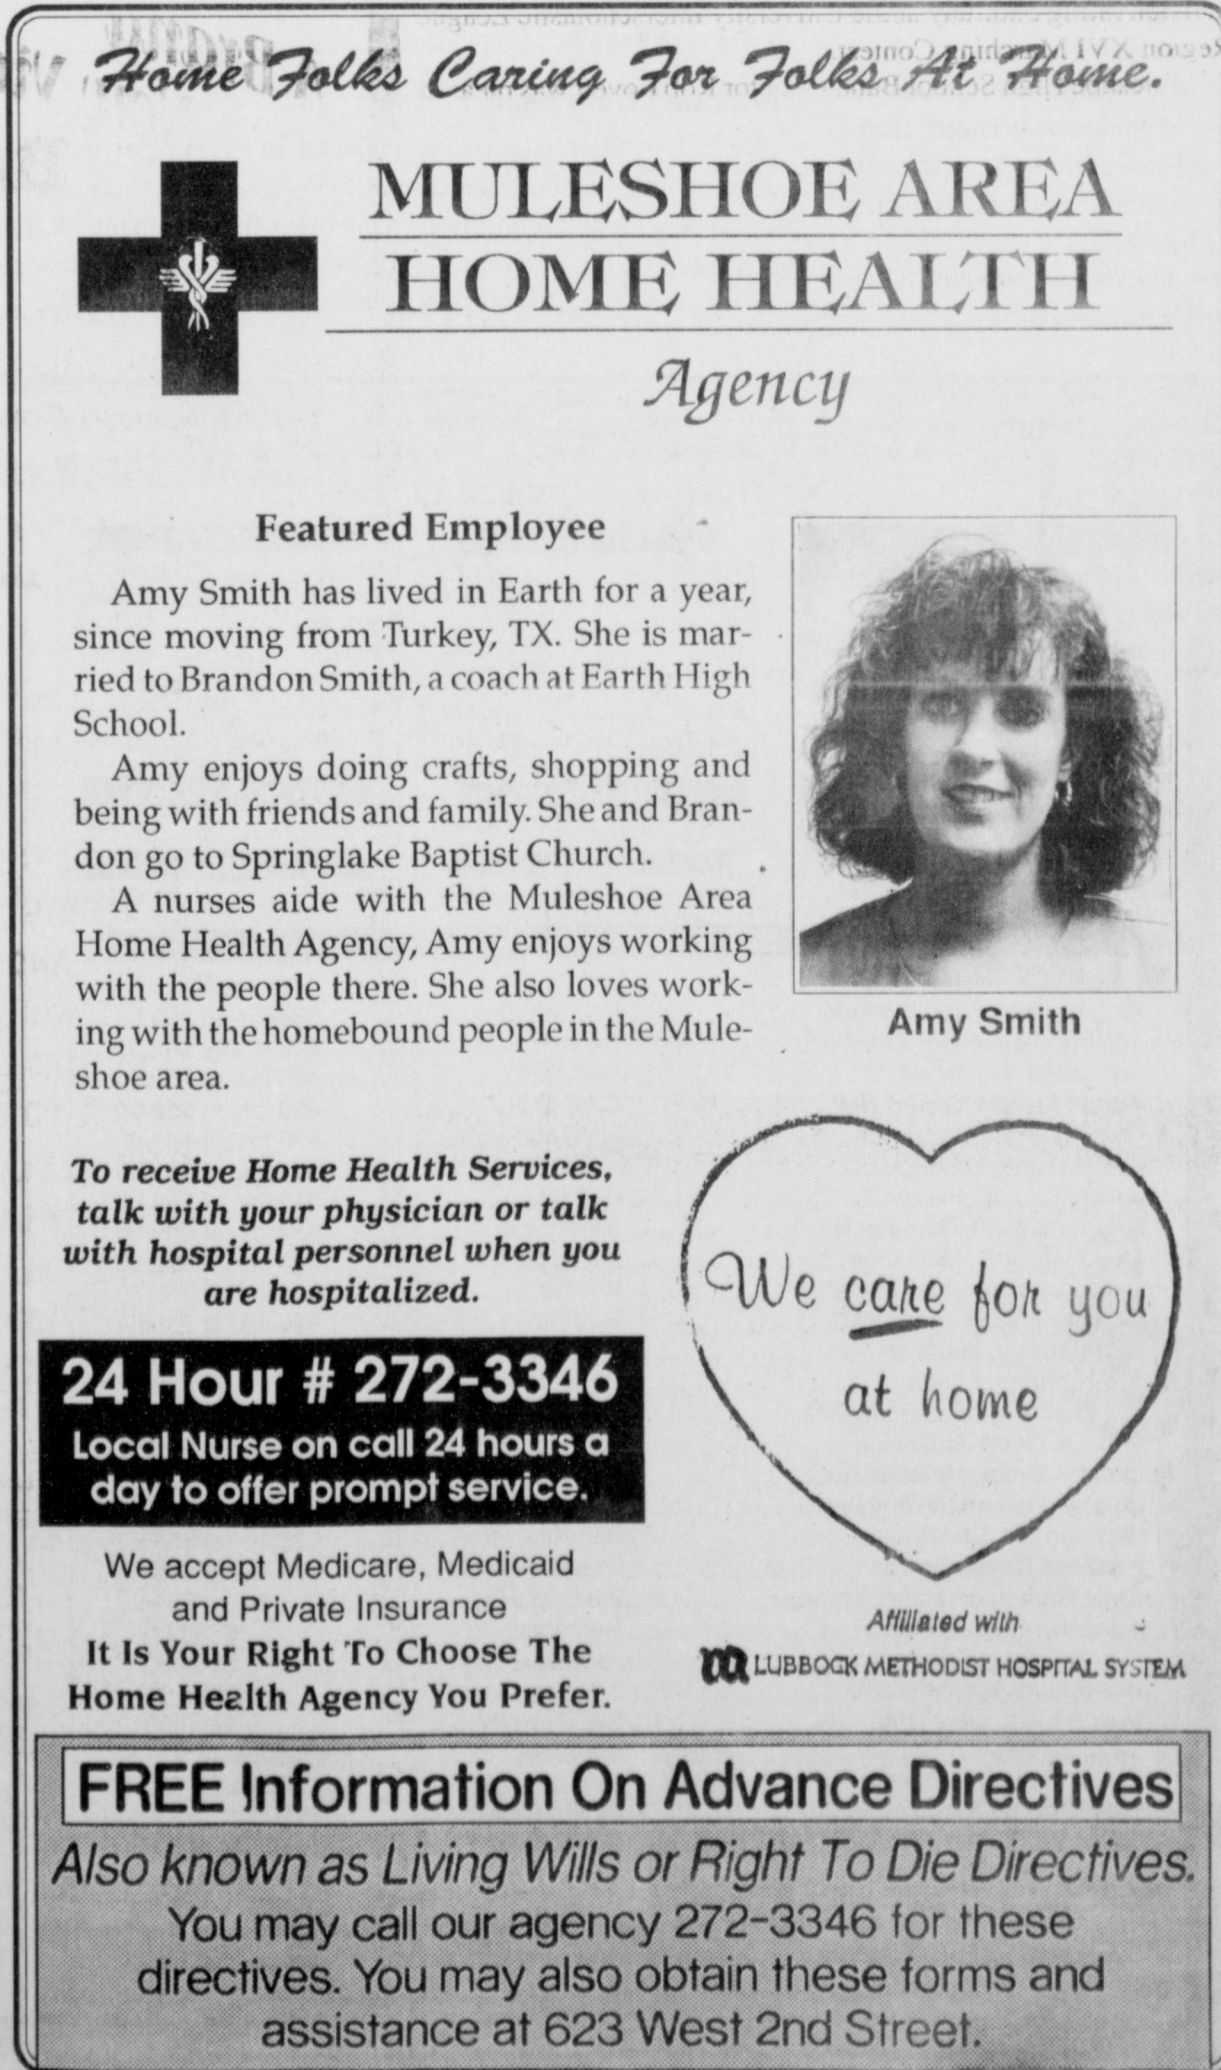 Home Folks Caring For Folks At Home.
MULESHOE AREA
HOME HEALTH
Agency
Featured Employee
Amy Smith has lived in Earth for a year,
since moving from Turkey, TX. She is mar-
ried to Brandon Smith, a coach at Earth High
School.
Amy enjoys doing crafts, shopping and
being with friends and family. She and Bran-
don go to Springlake Baptist Church.
A nurses aide with the Muleshoe Area
Home Health Agency, Amy enjoys working
with the people there. She also loves work-
ing with the homebound people in the Mule-
shoe area.
Amy Smith
To receive Home Health Services,
talk with your physician or talk
with hospital personnel when you
are hospitalized.
24 Hour # 272-3346
Local Nurse on call 24 hours a
day to offer prompt service.
We accept Medicare, Medicaid
and Private Insurance
It Is Your Right To Choose The
Home Health Agency You Prefer.
We care for you
at home
Affiliated with
LUBBOCK METHODIST HOSPITAL SYSTEM
FREE Information On Advance Directives
Also known as Living Wills or Right To Die Directives.
You may call our agency 272-3346 for these
directives. You may also obtain these forms and
assistance at 623 West 2nd Street.